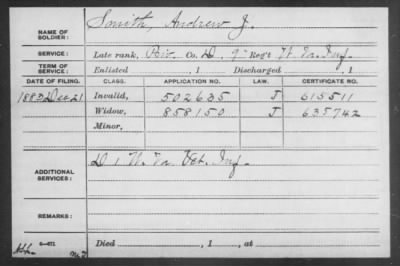 NAME OF SOLDIER: Smith, Andrew J.
SERVICE: Late rank, Priv. Co. D, 9" Reg't W. Va. Inf.
TERM OF SERVICE: Enlisted , 1 Discharged , 1
DATE OF FILING. CLASS. APPLICATION NO. LAW. CERTIFICATE NO.
1883 Dec 21 Invalid, 502635 J 615511
Widow, 858150 J 635742
Minor,
ADDITIONAL SERVICES: D 1 W. Va. Vet. Inf.
REMARKS:
6-471 Died , 1 , at